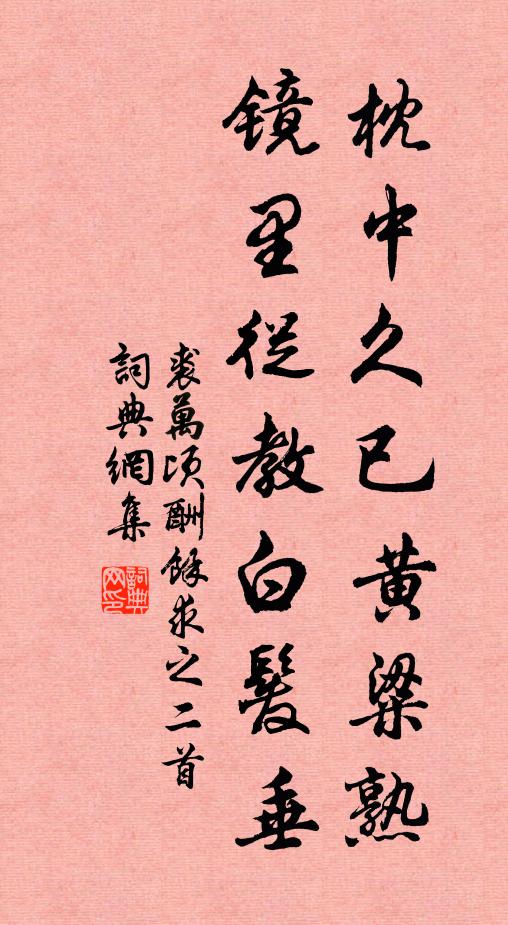 枕中久已黄粱熟
镜里從教白髮垂
裘萬頃酬餘求之二首
詞典網集
詞典网印